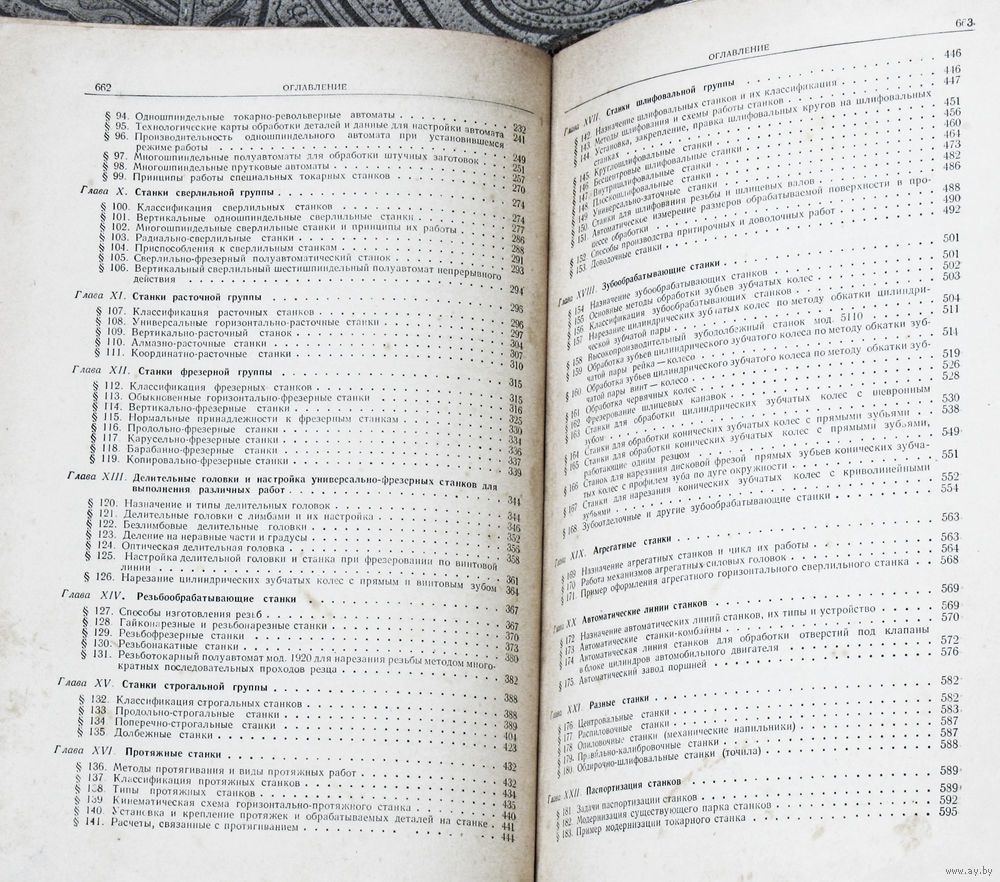 662 ОГЛАВЛЕНИЕ
§ 94. Одношпиндельные токарно-револьверные автоматы 232
§ 95. Технологические карты обработки деталей и данные для настройки автомата 241
§ 96. Производительность одношпиндельного автомата при установившемся
режиме работы 249
§ 97. Многошпиндельные полуавтоматы для обработки штучных заготовок 251
§ 98. Многошпиндельные прутковые автоматы 257
§ 99. Принципы работы специальных токарных станков 270
Глава X. Станки сверлильной группы 274
§ 100. Классификация сверлильных станков 274
§ 101. Вертикальные одношпиндельные сверлильные станки 277
§ 102. Многошпиндельные сверлильные станки и принципы их работы 286
§ 103. Радиально-сверлильные станки 288
§ 104. Приспособления к сверлильным станкам 291
§ 105. Сверлильно-фрезерный полуавтоматический станок 293
§ 106. Вертикальный сверлильный шестишпиндельный полуавтомат непрерывного
действия 294
Глава XI. Станки расточной группы 295
§ 107. Классификация расточных станков 296
§ 108. Универсальные горизонтально-расточные станки 297
§ 109. Вертикально-расточный станок 304
§ 110. Алмазно-расточные станки 307
§ 111. Координатно-расточные станки 310
Глава XII. Станки фрезерной группы 315
§ 112. Классификация фрезерных станков 315
§ 113. Обыкновенные горизонтально-фрезерные станки 316
§ 114. Вертикально-фрезерные станки 325
§ 115. Нормальные принадлежности к фрезерным станкам 330
§ 116. Продольно-фрезерные станки 334
§ 117. Карусельно-фрезерные станки 336
§ 118. Барабанно-фрезерные станки 337
§ 119. Копировально-фрезерные станки 339
Глава XIII. Делительные головки и настройка универсально-фрезерных станков для
выполнения различных работ 344
§ 120. Назначение и типы делительных головок 344
§ 121. Делительные головки с лимбами и их настройка 346
§ 122. Безлимбовые делительные головки 352
§ 123. Деление на неравные части и градусы 356
§ 124. Оптическая делительная головка 358
§ 125. Настройка делительной головки и станка при фрезеровании по винтовой
линии 361
§ 126. Нарезание цилиндрических зубчатых колес с прямым и винтовым зубом 364
Глава XIV. Резьбообрабатывающие станки 367
§ 127. Способы изготовления резьб 367
§ 128. Гайконарезные и резьбонарезные станки 370
§ 129. Резьбофрезерные станки 373
§ 130. Резьбонакатные станки 380
§ 131. Резьботокарный полуавтомат мод. 1920 для нарезания резьбы методом много-
кратных последовательных проходов резца 382
Глава XV. Станки строгальной группы 388
§ 132. Классификация строгальных станков 388
§ 133 Продольно-строгальные станки 389
§ 134. Поперечно-строгальные станки 404
§ 135. Долбежные станки 423
Глава XVI. Протяжные станки 432
§ 136. Методы протягивания и виды протяжных работ 432
§ 137. Классификация протяжных станков 434
§ 138. Типы протяжных станков 435
§ 139 Кинематическая схема горизонтально-протяжного станка 440
§ 140. Установка и крепление протяжек и обрабатываемых деталей на станке 441
§ 141. Расчеты, связанные с протягиванием 444
ОГЛАВЛЕНИЕ 663
Глава XVII. Станки шлифовальной группы 446
§ 142 Назначение шлифовальных станков и их классификация 446
§ 143 Методы шлифования и схемы работы станков 447
§ 144 Установка, закрепление, правка шлифовальных кругов на шлифовальных
станках 451
§ 145. Круглошлифовальные станки 456
§ 146 Бесцентровые шлифовальные станки 460
§ 147 Внутришлифовальные станки 464
§ 148 Плоскошлифовальные станки 473
§ 149 Универсально-заточные станки 482
§ 150 Станки для шлифования резьбы и шлицевых валов 486
§ 151. Автоматическое измерение размеров обрабатываемой поверхности в про-
цессе обработки 488
§ 152. Способы производства притирочных и доводочных работ 490
§ 153. Доводочные станки 492
Глава XVIII. Зубообрабатывающие станки 501
§ 154 Назначение зубообрабатывающих станков 501
§ 155 Основные методы обработки зубьев зубчатых колес 502
§ 156 Классификация зубообрабатывающих станков 503
§ 157 Нарезание цилиндрических зубчатых колес по методу обкатки цилиндри-
ческой зубчатой пары 504
§ 158 Высокопроизводительный зубодолбежный станок мод. 5110 511
§ 159 Обработка зубьев цилиндрического зубчатого колеса по методу обкатки зуб-
чатой пары рейка — колесо 514
§ 160 Обработка зубьев цилиндрического зубчатого колеса по методу обкатки зуб-
чатой пары винт — колесо 519
§ 161 Обработка червячных колес 526
§ 162 Фрезерование шлицевых канавок 528
§ 163 Станки для обработки цилиндрических зубчатых колес с шевронным
зубом 530
§ 164 Станки для обработки конических зубчатых колес с прямыми зубьями 538
§ 165 Станки для обработки конических зубчатых колес с прямыми зубьями,
работающие одним резцом 549
§ 166 Станок для нарезания дисковой фрезой прямых зубьев конических зубча-
тых колес с профилем зуба по дуге окружности 551
§ 167 Станки для нарезания конических зубчатых колес с криволинейными
зубьями 552
§ 168. Зубоотделочные и другие зубообрабатывающие станки 554
Глава XIX. Агрегатные станки 563
§ 169 Назначение агрегатных станков и цикл их работы 563
§ 170 Работа механизмов агрегатных силовых головок 564
§ 171. Пример оформления агрегатного горизонтального сверлильного станка 568
Глава XX Автоматические линии станков 569
§ 172 Назначение автоматических линий станков, их типы и устройство 569
§ 173 Автоматические станки-комбайны 570
§ 174 Автоматическая линия станков для обработки отверстий под клапаны
в блоке цилиндров автомобильного двигателя 572
§ 175. Автоматический завод поршней 576
Глава XXI Разные станки 582
§ 176 Центровальные станки 582
§ 177 Распиловочные станки 583
§ 178 Опиловочные станки (механические напильники) 587
§ 179. Правильно-калибровочные станки 587
§ 180. Обдирочно-шлифовальные станки (точила) 588
Глава XXII Паспортизация станков 589
§ 181 Задачи паспортизации станков 589
§ 182. Модернизация существующего парка станков 592
§ 183. Пример модернизации токарного станка 595
www.ay.by